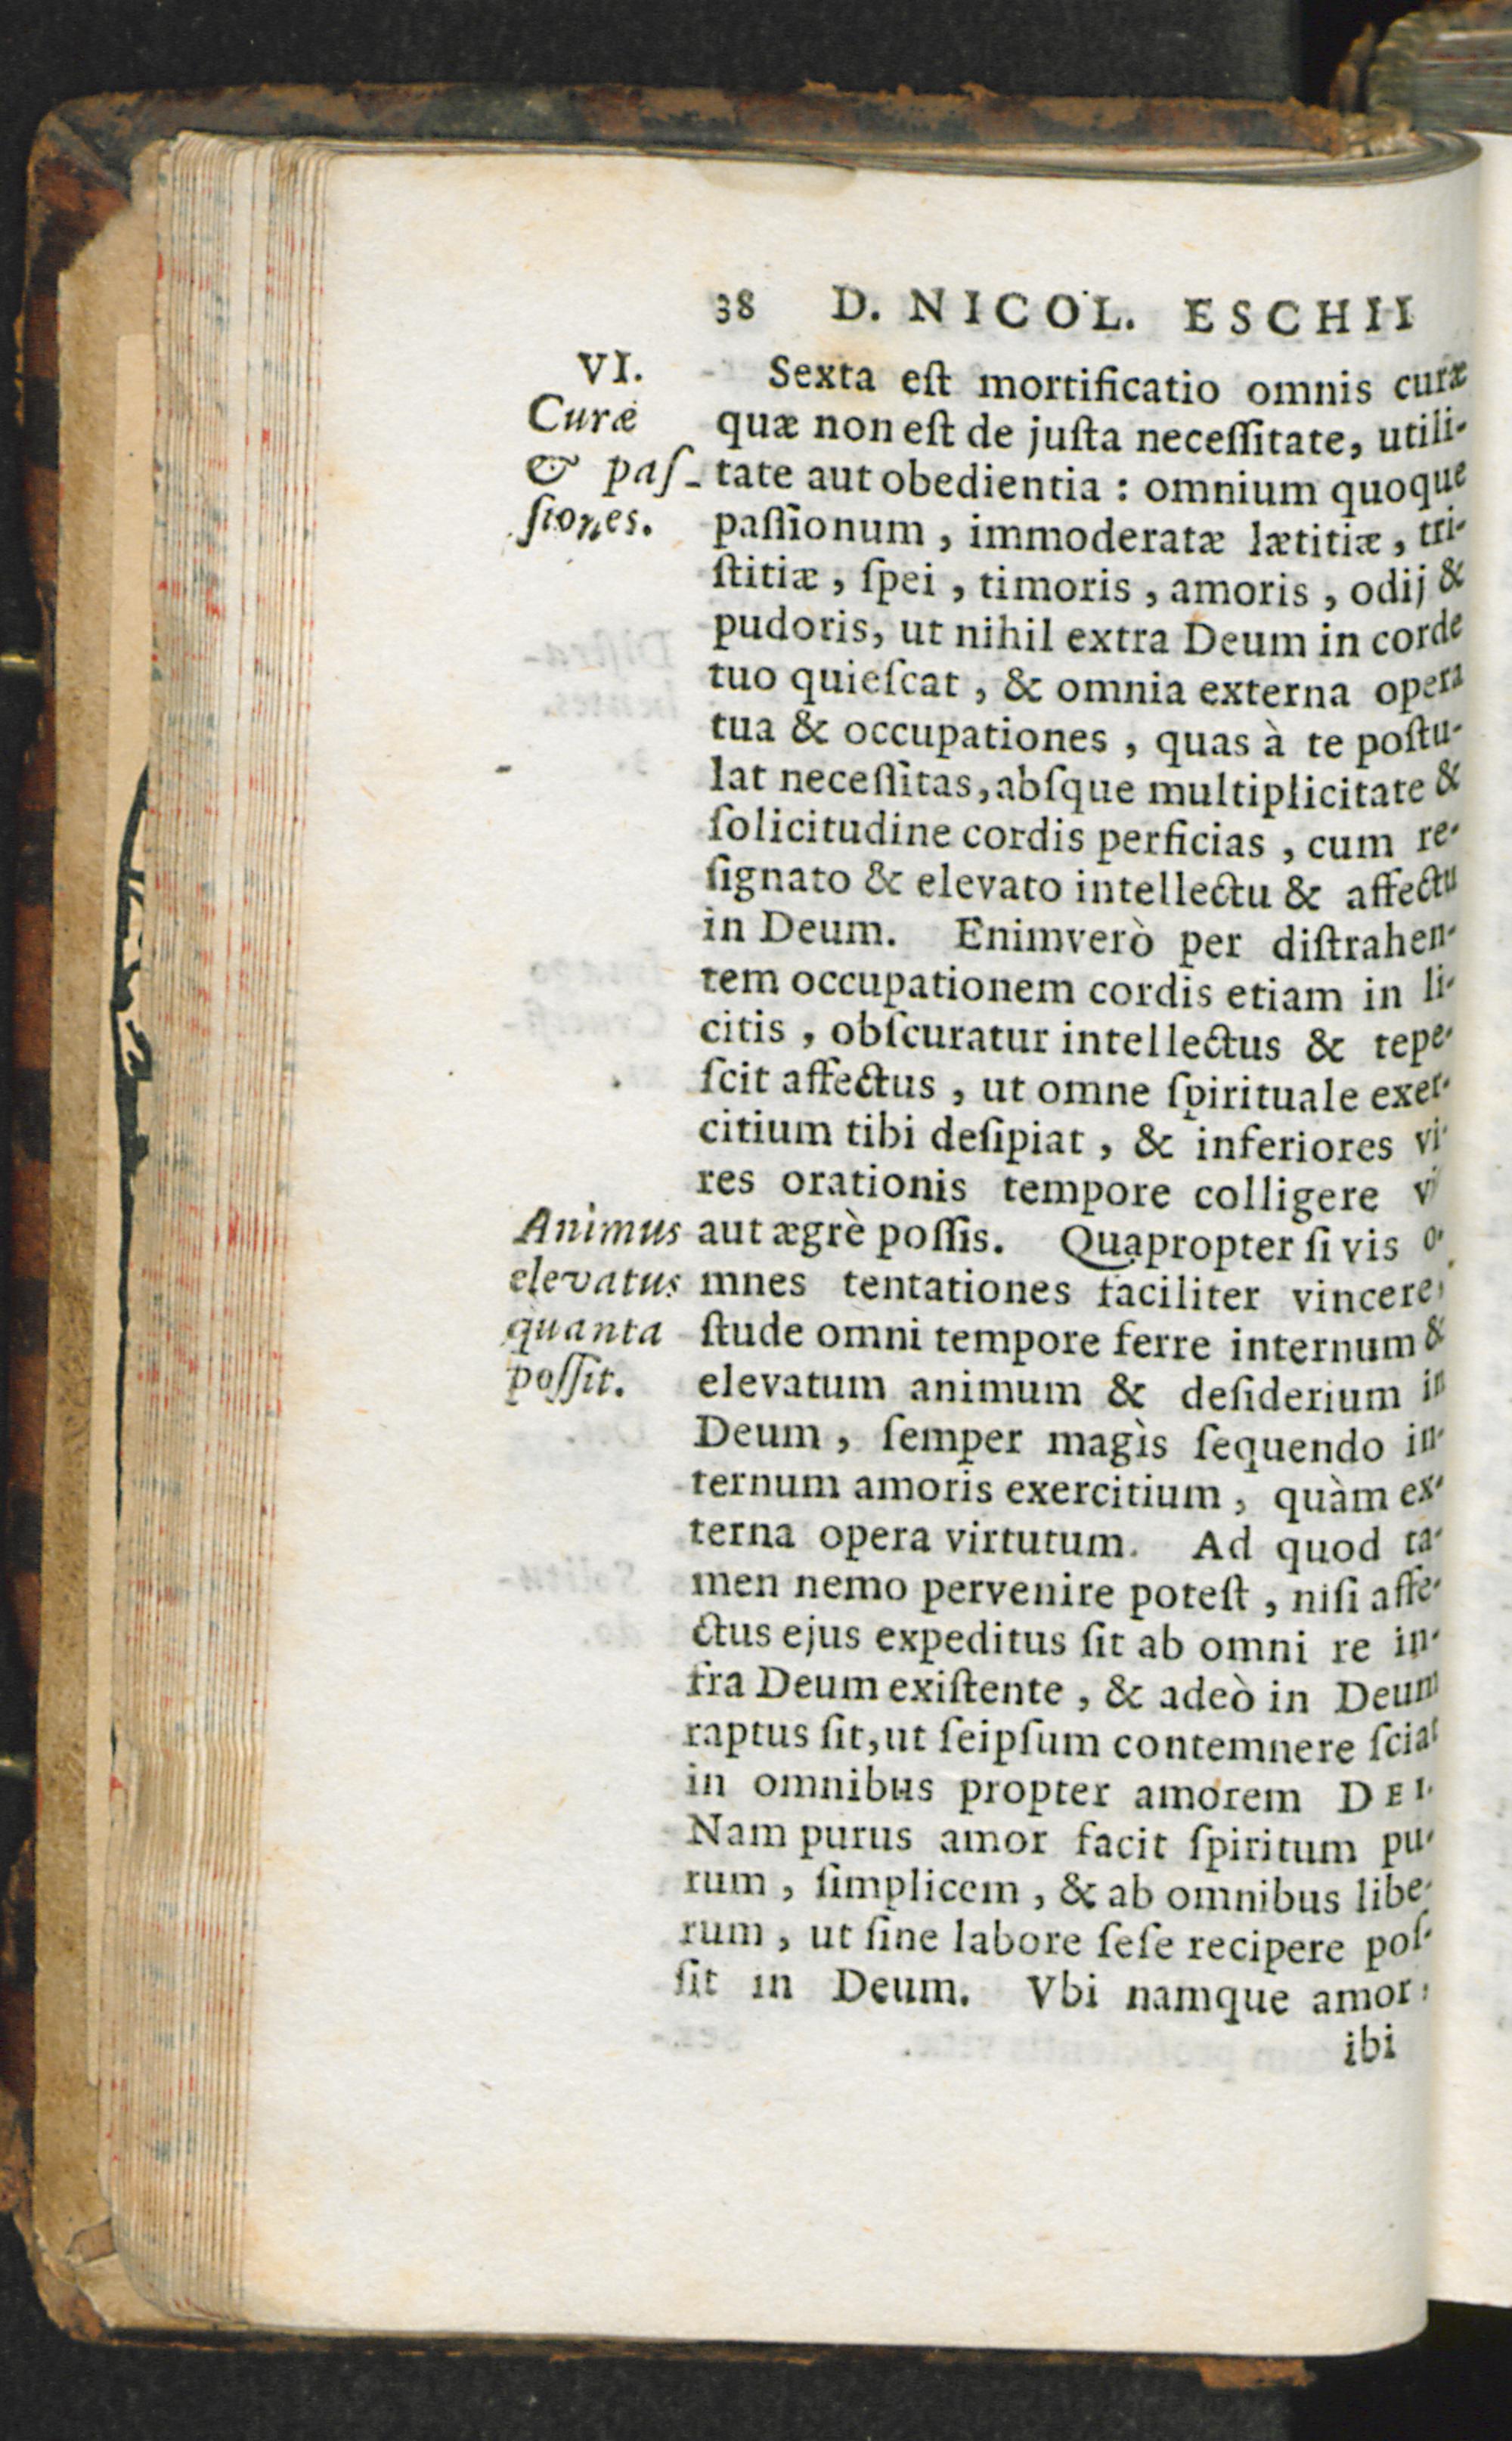 38 D. NICOL. ESCHII
VI.
Curæ
& paſ-
ſiones.
Sexta eſt mortificatio omnis curæ
quæ non eſt de juſta neceſſitate, utili-
tate aut obedientia : omnium quoque
paſſionum , immoderatæ lætitiæ , tri-
ſtitiæ , ſpei , timoris , amoris , odij &
pudoris, ut nihil extra Deum in corde
tuo quieſcat , & omnia externa opera
tua & occupationes , quas à te poſtu-
lat neceſſitas, abſque multiplicitate &
ſolicitudine cordis perficias , cum re-
ſignato & elevato intellectu & affectu
in Deum. Enimverò per diſtrahen-
tem occupationem cordis etiam in li-
citis , obſcuratur intellectus & tepe-
ſcit affectus , ut omne ſpirituale exer-
citium tibi deſipiat , & inferiores vi-
res orationis tempore colligere
Animus
elevatus
quanta
poſſit.
aut ægrè poſſis. Quapropter ſi vis o-
mnes tentationes faciliter vincere,
ſtude omni tempore ferre internum &
elevatum animum & deſiderium in
Deum , ſemper magìs ſequendo in-
ternum amoris exercitium , quàm ex-
terna opera virtutum. Ad quod ta-
men nemo pervenire poteſt , niſi affe-
ctus ejus expeditus ſit ab omni re in-
fra Deum exiſtente , & adeò in Deum
raptus ſit, ut ſeipſum contemnere ſciat
in omnibus propter amorem DEI.
Nam purus amor facit ſpiritum pu-
rum , ſimplicem , & ab omnibus libe-
rum , ut ſine labore ſeſe recipere poſ-
ſit in Deum. Vbi namque amor,
ibi